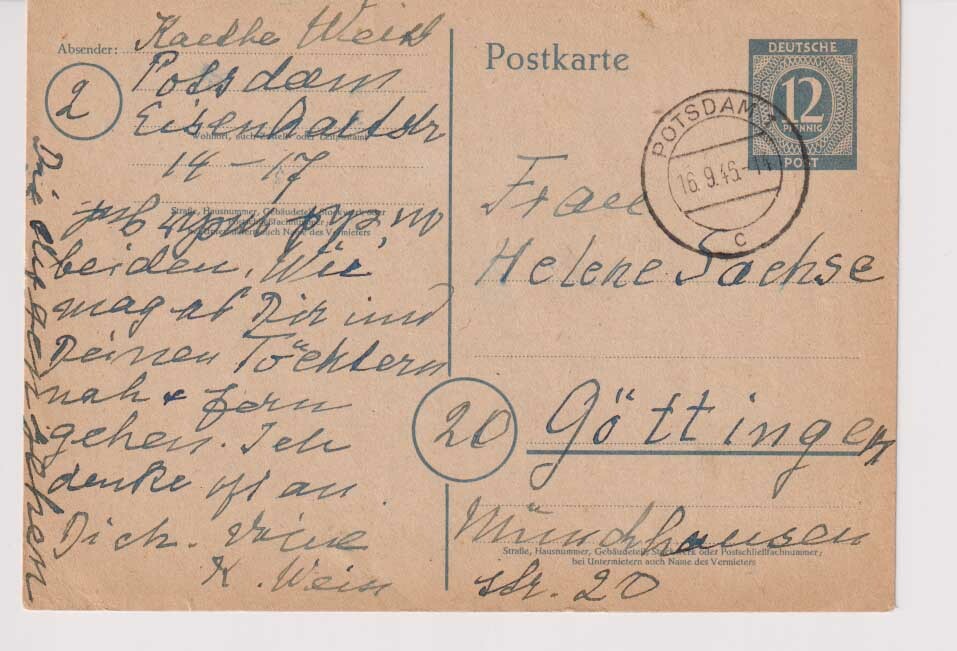 Absender: Kaethe Weiss
2
Potsdam
Eisenhartstr
Wohnort, auch Zustell- oder Leitpostamt
14 – 17
Straße, Hausnummer, Gebäudeteil, Stockwerk oder
Postschließfachnummer;
bei Untermietern auch Name des Vermieters
beiden. Wie
mag es Dir und
Deinen Töchtern
nah + fern
gehen. Ich
denke oft an
Dich. Deine
K. Weiss
Postkarte
DEUTSCHE
12
PFENNIG
POST
POTSDAM
16.9.46.-14
c
Frau
Helene Sachse
20 Göttingen
Münchhausen
Straße, Hausnummer, Gebäudeteil, Stockwerk oder Postschließfachnummer;
bei Untermietern auch Name des Vermieters
str. 20